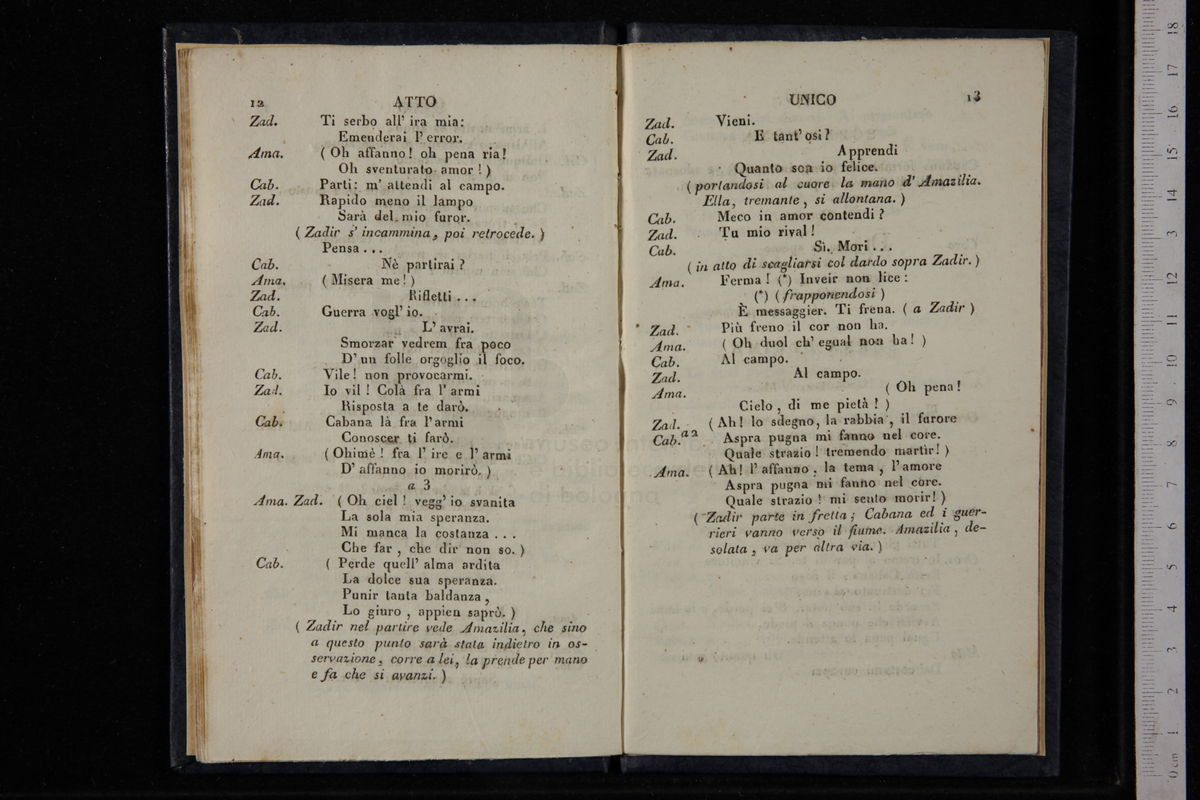 12 ATTO
Zad. Ti serbo all' ira mia:
Emenderai l' error.
Ama. ( Oh affanno! oh pena ria!
Oh sventurato amor ! )
Cab. Parti: m' attendi al campo.
Zad. Rapido meno il lampo
Sarà del mio furor.
( Zadir s' incammina, poi retrocede. )
Pensa . . .
Cab. Nè partirai ?
Ama. ( Misera me ! )
Zad. Rifletti . . .
Cab. Guerra vogl' io.
Zad. L' avrai.
Smorzar vedrem fra poco
D' un folle orgoglio il foco.
Cab. Vile! non provocarmi.
Zad. Io vil ! Colà fra l' armi
Risposta a te darò.
Cab. Cabana là fra l' armi
Conoscer ti farò.
Ama. ( Ohimè ! fra l' ire e l' armi
D' affanno io morirò. )
a 3
Ama. Zad. ( Oh ciel ! vegg' io svanita
La sola mia speranza.
Mi manca la costanza . . .
Che far , che dir non so. )
Cab. ( Perde quell' alma ardita
La dolce sua speranza.
Punir tanta baldanza ,
Lo giuro , appien saprò. )
( Zadir nel partire vede Amazilia, che sino
a questo punto sarà stata indietro in os-
servazione, corre a lei, la prende per mano
e fa che si avanzi. )
UNICO 13
Zad. Vieni.
Cab. E tant' osi ?
Zad. Apprendi
Quanto son io felice.
( portandosi al cuore la mano d' Amazilia.
Ella, tremante , si allontana. )
Cab. Meco in amor contendi ?
Zad. Tu mio rival !
Cab. Sì. Mori . . .
( in atto di scagliarsi col dardo sopra Zadir. )
Ama. Ferma ! (*) Inveir non lice :
(*) ( frapponendosi )
È messaggier. Ti frena. ( a Zadir )
Zad. Più freno il cor non ha.
Ama. ( Oh duol ch' egual non ha ! )
Cab. Al campo.
Zad. Al campo.
Ama. ( Oh pena !
Cielo , di me pietà ! )
Zad. ( Ah! lo sdegno, la rabbia , il furore
Cab. a 2 Aspra pugna mi fanno nel core.
Quale strazio ! tremendo martìr! )
Ama. ( Ah! l' affanno , la tema , l' amore
Aspra pugna mi fanno nel core.
Quale strazio ! mi sento morir! )
( Zadir parte in fretta ; Cabana ed i guer-
rieri vanno verso il fiume. Amazilia , de-
solata , va per altra via. )